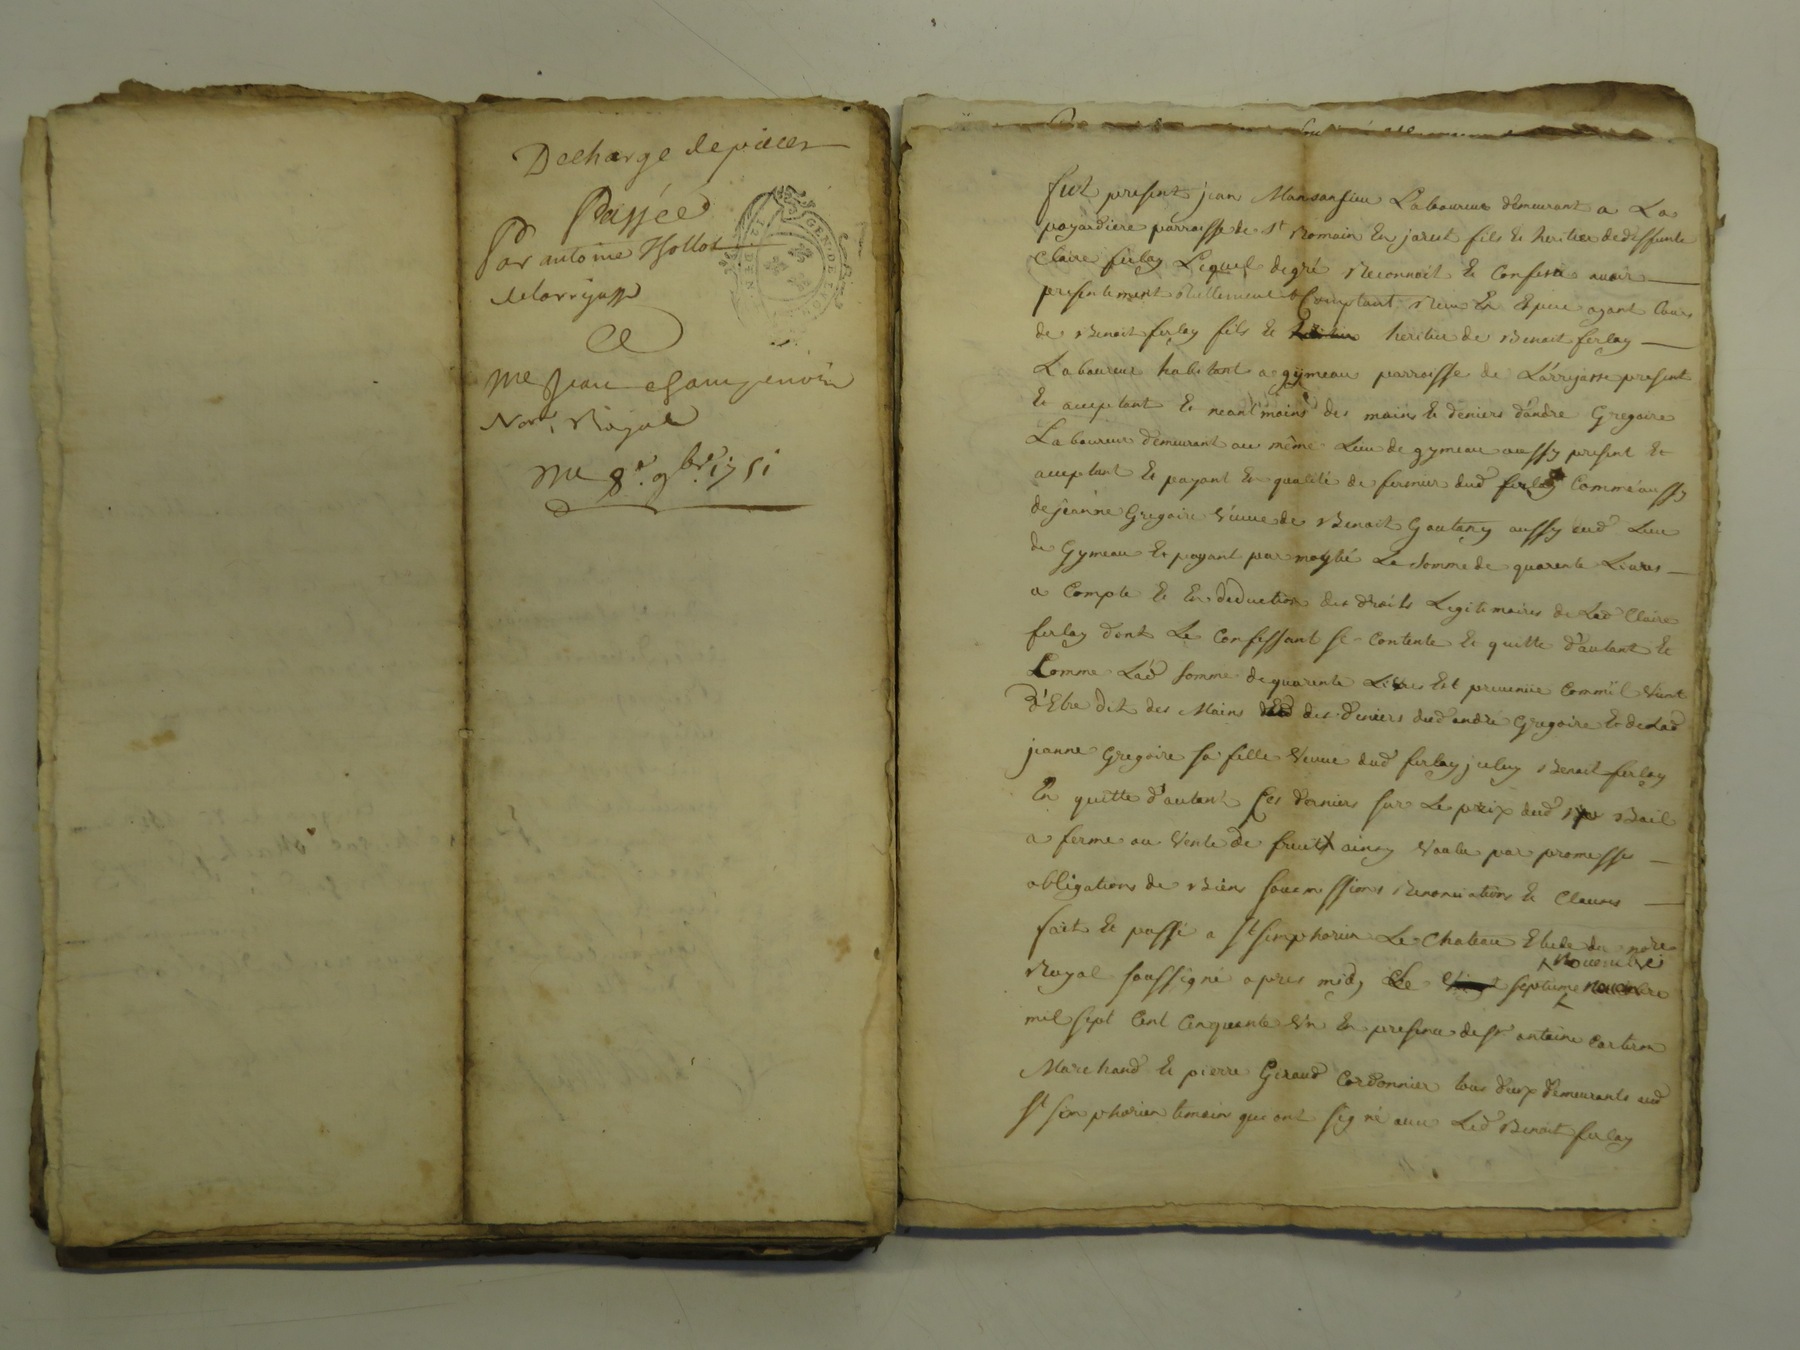 Decharge de pieces
Passée
Par antoine Thollot
de larrajasse
A
Me Jean
Nore Royal
Du 8e 9bre 1751
GEN DE LYON
fut present jean Laboureur demeurant a La
payardiere parroisse de St Romain En jarest fils & heritier de deffunte
Claire ferlay Lequel de gré Reconnoit & Confesse avoir
presentement Réellement & Comptant Reçu En Espece ayant Cours
de Benoit ferlay fils & heritier de Benoit ferlay
Laboureur habitant a gymeau parroisse de Larrajasse present
& acceptant & neantmoins des mains & deniers d'andre Gregoire
Laboureur demeurant au même Lieu de gymeau aussy present &
acceptant & payant En qualité de fermier dud ferlay Comme aussy
de jeanne Gregoire veuve de Benoit aussy aud Lieu
de Gymeau & payant par moytié La Somme de quarente Livres
a Compte & En deduction des droits Legitimaires de Lad Claire
ferlay dont Le Confessant se Contente & quitte d'autant &
Comme Lad Somme de quarente Livres Est provenüe Comm'il vient
d'Etre dit des Mains des deniers dud andré Gregoire & de Lad
jeanne Gregoire sa fille veuve dud ferlay iceluy Benoit ferlay
En quitte d'autant Ces derniers sur Le prix dud Bail
a ferme ou vente de fruit ainsy voulu par promesse
obligations de Biens soumissions Renonciations & Clauses
fait & passé a St simphorien Le Chateau Etude du nore
Novembre
Royal soussigné apres midy Le septieme
mil sept Cent Cinquante Un En presence de Sr antoine
Marchand & pierre Giraud Cordonnier tous deux demeurants aud
St simphorien temoins qui ont signé avec Led Benoit ferlay